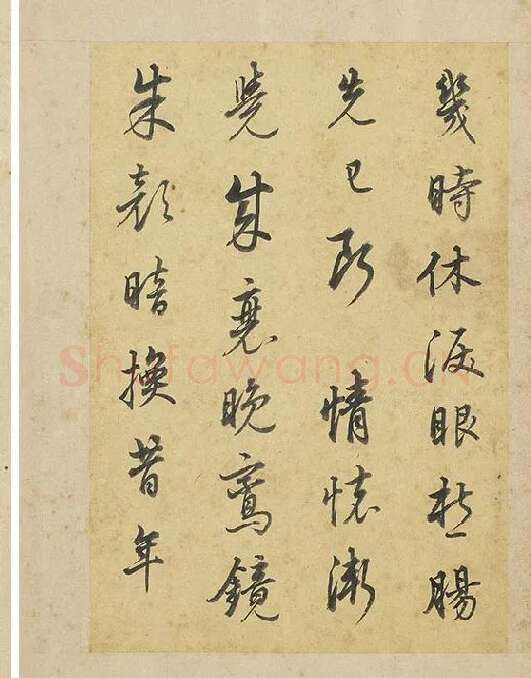 幾時休淚眼愁腸
先已斷 情懷漸
覺成衰晚鸞鏡
朱顏暗換昔年
Shufawang.CN